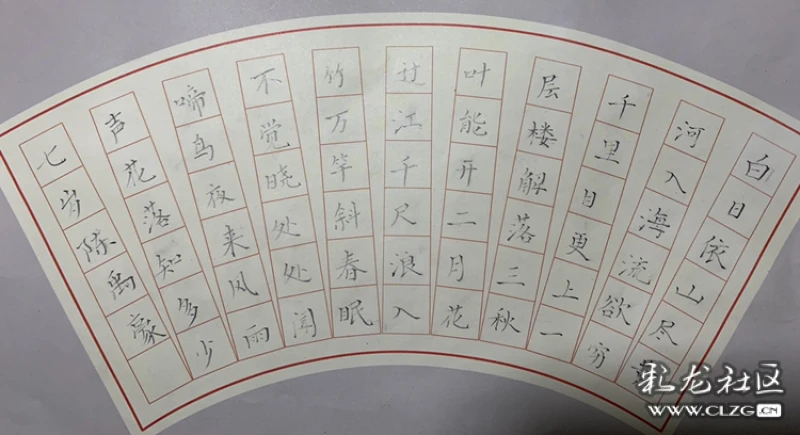 白日依山尽
河入海流欲穷
千里目更上一
层楼解落三秋
叶能开二月花
过江千尺浪入
竹万竿斜春眠
不觉晓处处闻
啼鸟夜来风雨
声花落知多少
七岁陈禹豪
彩龙社区
WWW.CLZG.CN